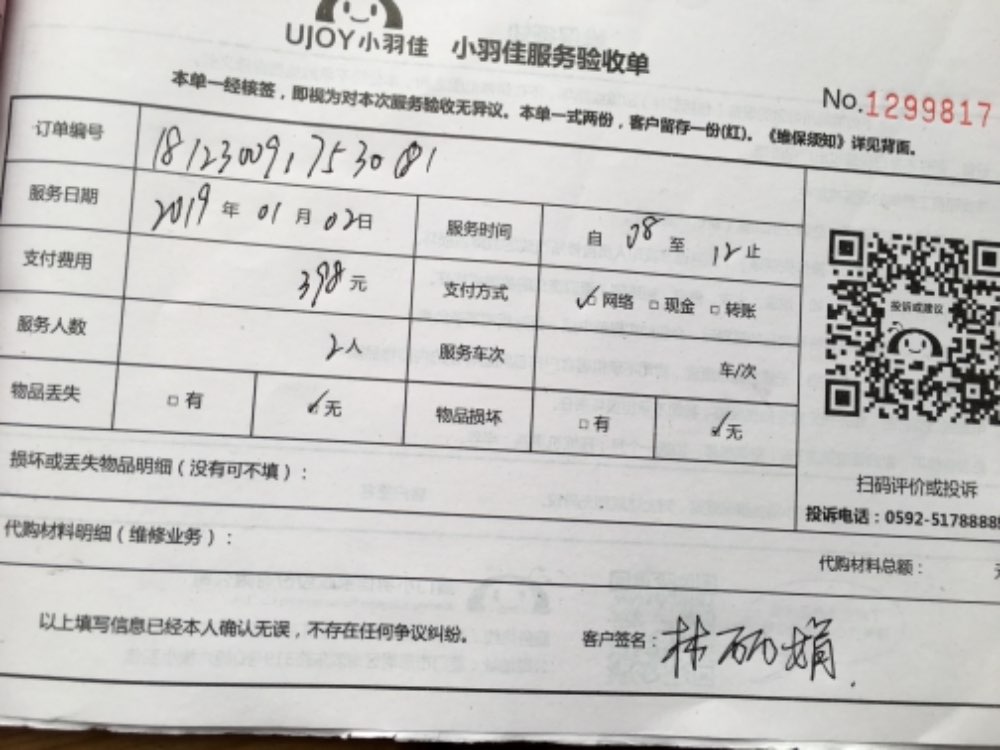 UJOY小羽佳 小羽佳服务验收单
本单一经核签，即视为对本次服务验收无异议。本单一式两份，客户留存一份(红)。《维保须知》详见背面。
No.1299817
订单编号 1812300917530081
服务日期 2019年01月02日 服务时间 自08至12止
支付费用 398元 支付方式 ✓网络 □现金 □转账
服务人数 2人 服务车次 车/次
物品丢失 □有 ✓无 物品损坏 □有 ✓无
投诉或建议
扫码评价或投诉
投诉电话：0592-5178888
损坏或丢失物品明细（没有可不填）：
代购材料明细（维修业务）： 代购材料总额：
以上填写信息已经本人确认无误，不存在任何争议纠纷。 客户签名：林丽娟